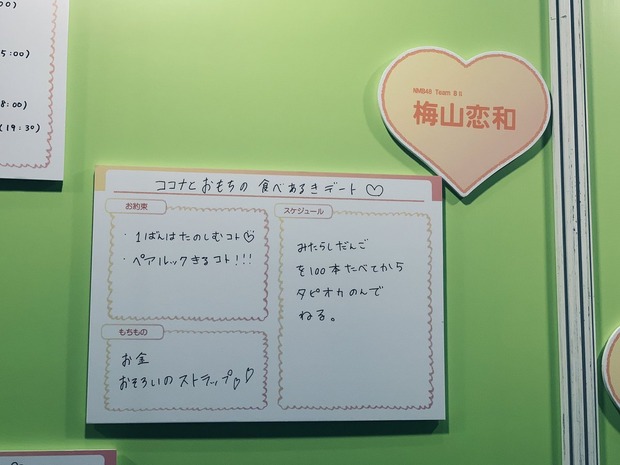 00)
5:00)
8:00)
(19:30)
NMB48 Team BⅡ
梅山恋和
ココナとおもちの食べあるきデート♡
お約束
・1ばんはたのしむコト♡
・ペアルックきるコト!!!
もちもの
お金
おそろいのストラップ♡♡
スケジュール
みたらしだんご
を100本たべてから
タピオカのんで
ねる。